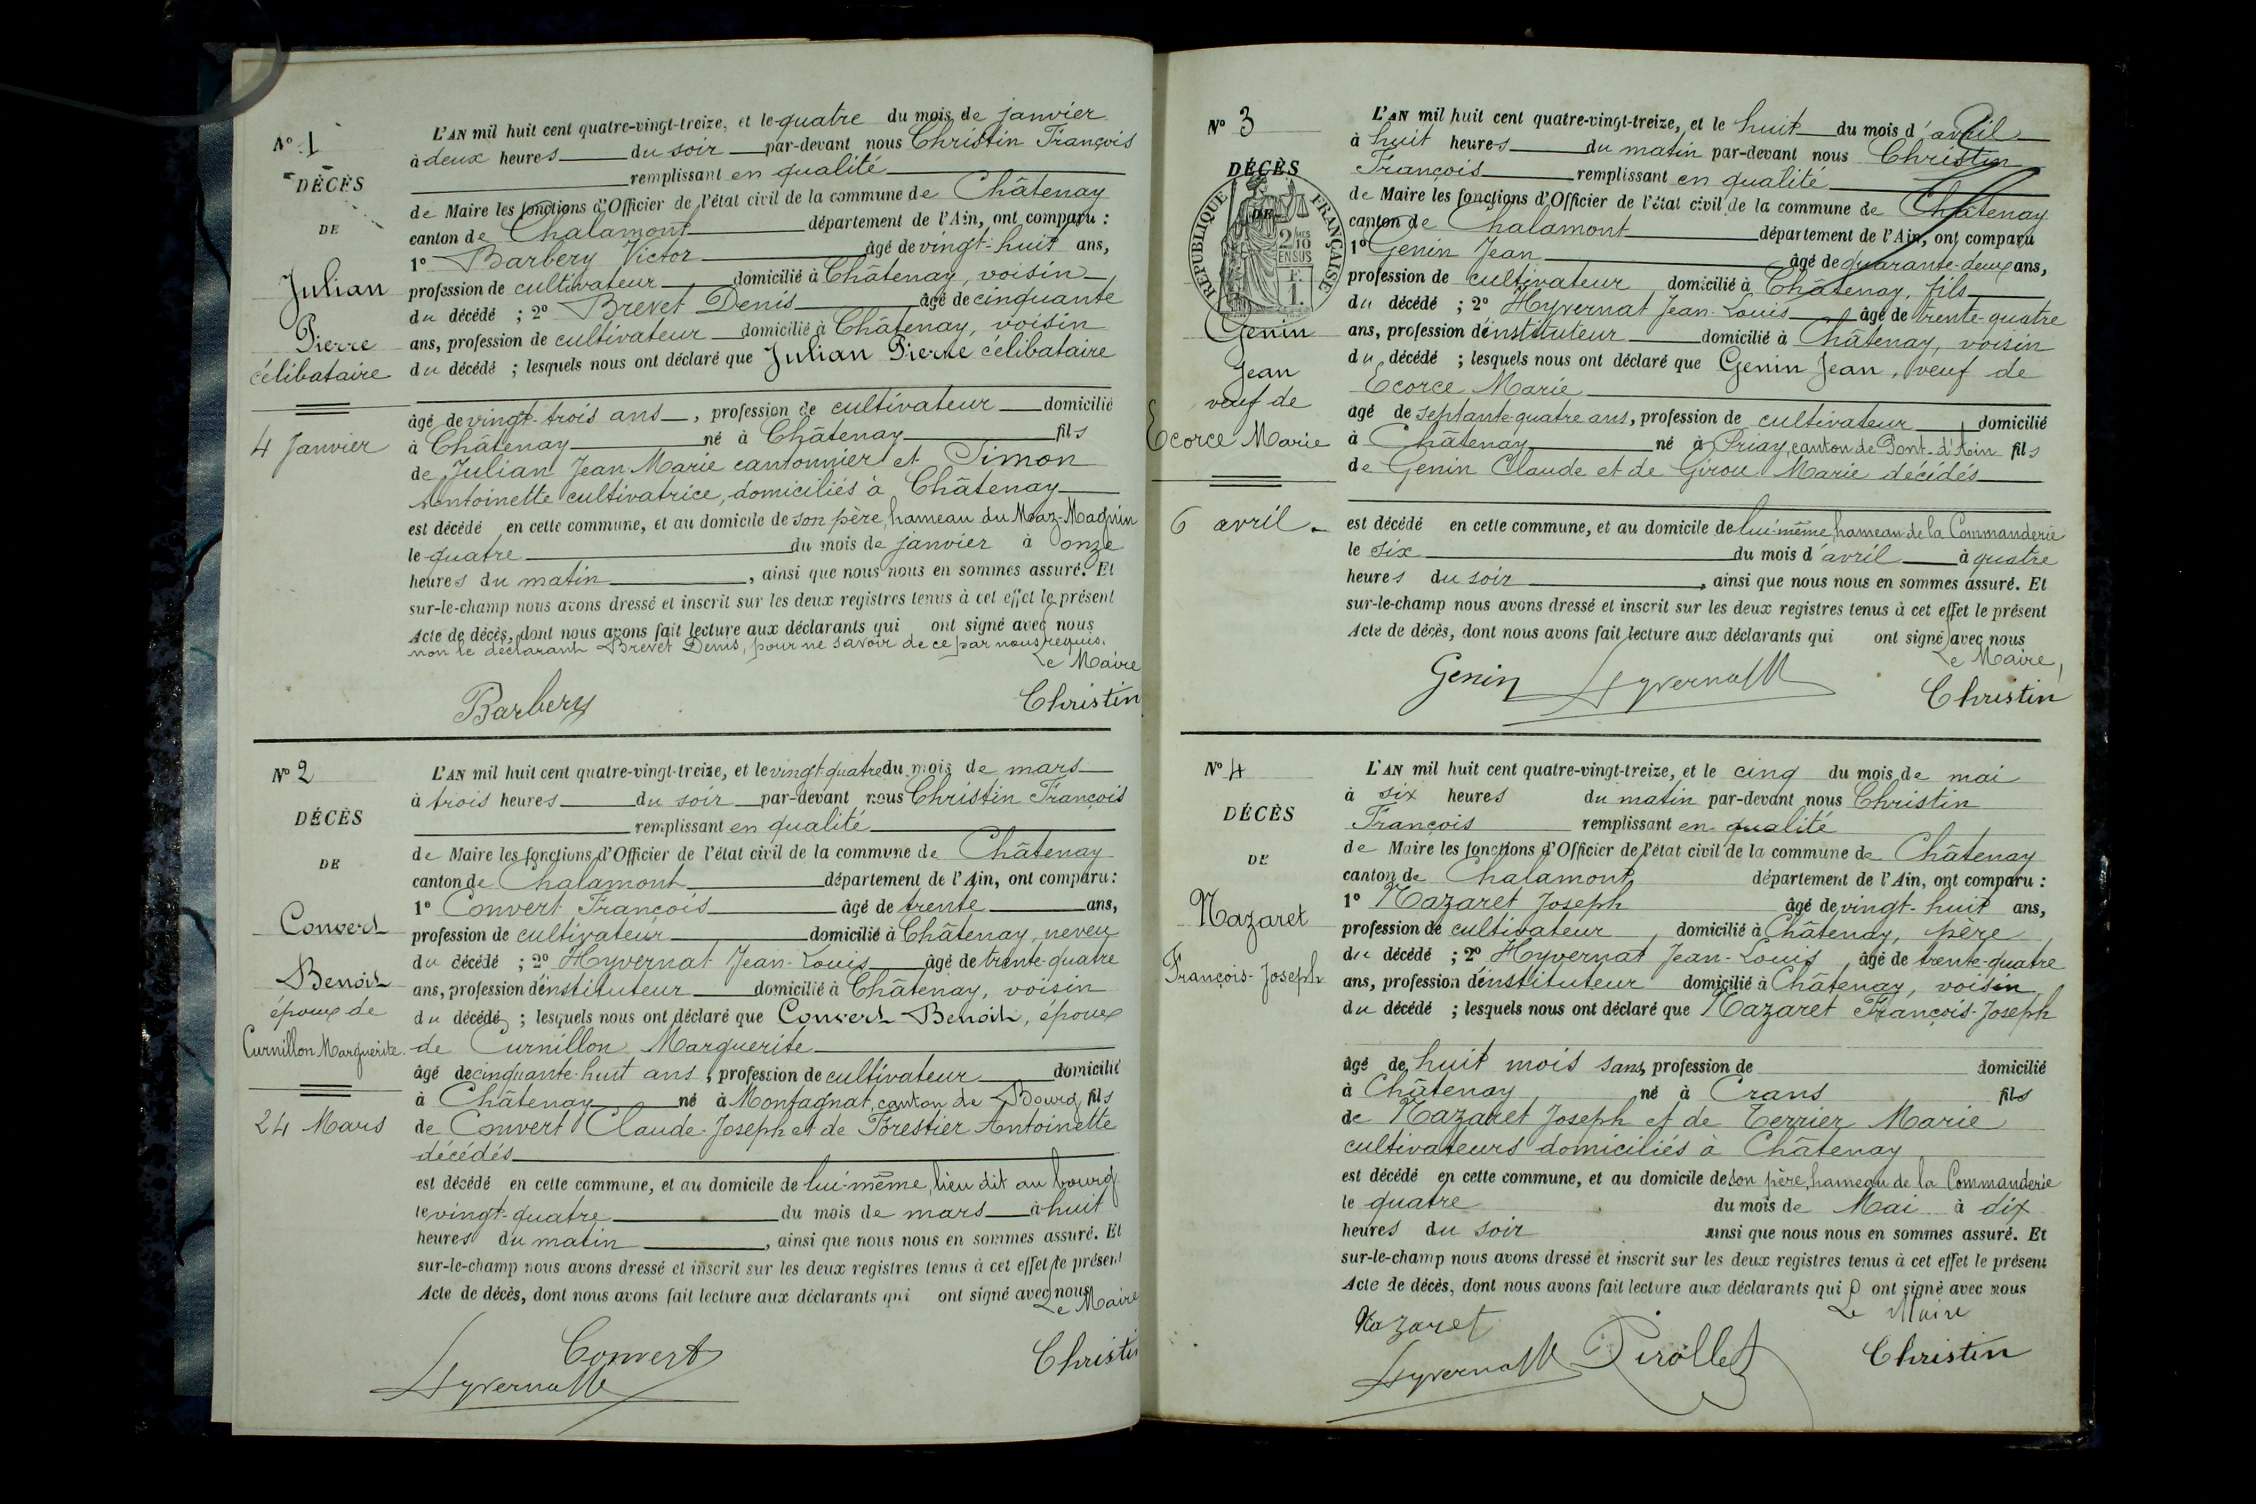 N° 1
DÉCÈS
DE
Julian
Pierre
célibataire
4 Janvier
L'AN mil huit cent quatre-vingt-treize, et le quatre du mois de janvier
à deux heures du soir par-devant nous Christin François
remplissant en qualité
de Maire les fonctions d'Officier de l'état civil de la commune de Châtenay
canton de Chalamont département de l'Ain, ont comparu :
1° Barbery Victor âgé de vingt-huit ans,
profession de cultivateur domicilié à Châtenay, voisin
du décédé ; 2° Brevet Denis âgé de cinquante
ans, profession de cultivateur domicilié à Châtenay, voisin
du décédé ; lesquels nous ont déclaré que Julian Pierre célibataire
âgé de vingt-trois ans, profession de cultivateur domicilié
à Châtenay né à Châtenay fils
de Julian Jean-Marie cantonnier et Simon
Antoinette cultivatrice, domiciliés à Châtenay
est décédé en cette commune, et au domicile de son père, hameau du Maz-Magnin
le quatre du mois de janvier à onze
heures du matin, ainsi que nous nous en sommes assuré. Et
sur-le-champ nous avons dressé et inscrit sur les deux registres tenus à cet effet le présent
Acte de décès, dont nous avons fait lecture aux déclarants qui ont signé avec nous
non le déclarant Brevet Denis, pour ne savoir de ce par nous requis.
Le Maire
Barbery Christin
N° 2
DÉCÈS
DE
Convert
Benoit
époux de
Curnillon Marguerite.
24 Mars
L'AN mil huit cent quatre-vingt-treize, et le vingt-quatre du mois de mars
à trois heures du soir par-devant nous Christin François
remplissant en qualité
de Maire les fonctions d'Officier de l'état civil de la commune de Châtenay
canton de Chalamont département de l'Ain, ont comparu :
1° Convert François âgé de trente ans,
profession de cultivateur domicilié à Châtenay, neveu
du décédé ; 2° Hyvernat Jean-Louis âgé de trente-quatre
ans, profession d'instituteur domicilié à Châtenay, voisin
du décédé ; lesquels nous ont déclaré que Convert Benoit, époux
de Curnillon Marguerite
âgé de cinquante-huit ans, profession de cultivateur domicilié
à Châtenay né à Montagnat, canton de Bourg fils
de Convert Claude-Joseph et de Forestier Antoinette
décédés
est décédé en cette commune, et au domicile de lui-même, lieu dit au bourg
le vingt-quatre du mois de mars à huit
heures du matin, ainsi que nous nous en sommes assuré. Et
sur-le-champ nous avons dressé et inscrit sur les deux registres tenus à cet effet le présent
Acte de décès, dont nous avons fait lecture aux déclarants qui ont signé avec nous
Le Maire
Convert Christin
Hyvernat
N° 3
DÉCÈS
DE
RÉPUBLIQUE FRANÇAISE
2/10
EN SUS
Genin
Jean
veuf de
Ecorce Marie
6 avril
L'AN mil huit cent quatre-vingt-treize, et le huit du mois d'avril
à huit heures du matin par-devant nous Christin
François remplissant en qualité
de Maire les fonctions d'Officier de l'état civil de la commune de Châtenay
canton de Chalamont département de l'Ain, ont comparu
1° Genin Jean âgé de quarante-deux ans,
profession de cultivateur domicilié à Châtenay, fils
du décédé ; 2° Hyvernat Jean-Louis âgé de trente-quatre
ans, profession d'instituteur domicilié à Châtenay, voisin
du décédé ; lesquels nous ont déclaré que Genin Jean, veuf de
Ecorce Marie
âgé de septante-quatre ans, profession de cultivateur domicilié
à Châtenay né à Priay, canton de Pont-d'Ain fils
de Genin Claude et de Girou Marie décédés
est décédé en cette commune, et au domicile de lui-même, hameau de la Commanderie
le six du mois d'avril à quatre
heures du soir, ainsi que nous nous en sommes assuré. Et
sur-le-champ nous avons dressé et inscrit sur les deux registres tenus à cet effet le présent
Acte de décès, dont nous avons fait lecture aux déclarants qui ont signé avec nous
Le Maire,
Genin Hyvernat Christin
N° 4
DÉCÈS
DE
Nazaret
François-Joseph
L'AN mil huit cent quatre-vingt-treize, et le cinq du mois de mai
à six heures du matin par-devant nous Christin
François remplissant en qualité
de Maire les fonctions d'Officier de l'état civil de la commune de Châtenay
canton de Chalamont département de l'Ain, ont comparu :
1° Nazaret Joseph âgé de vingt-huit ans,
profession de cultivateur, domicilié à Châtenay, père
du décédé ; 2° Hyvernat Jean-Louis, âgé de trente-quatre
ans, profession d'instituteur domicilié à Châtenay, voisin
du décédé ; lesquels nous ont déclaré que Nazaret François-Joseph
âgé de huit mois sans profession de domicilié
à Châtenay né à Crans fils
de Nazaret Joseph et de Terrier Marie
cultivateurs domiciliés à Châtenay
est décédé en cette commune, et au domicile de son père, hameau de la Commanderie
le quatre du mois de Mai à dix
heures du soir ainsi que nous nous en sommes assuré. Et
sur-le-champ nous avons dressé et inscrit sur les deux registres tenus à cet effet le présent
Acte de décès, dont nous avons fait lecture aux déclarants qui ont signé avec nous
Le Maire
Nazaret
Hyvernat Pirollet Christin